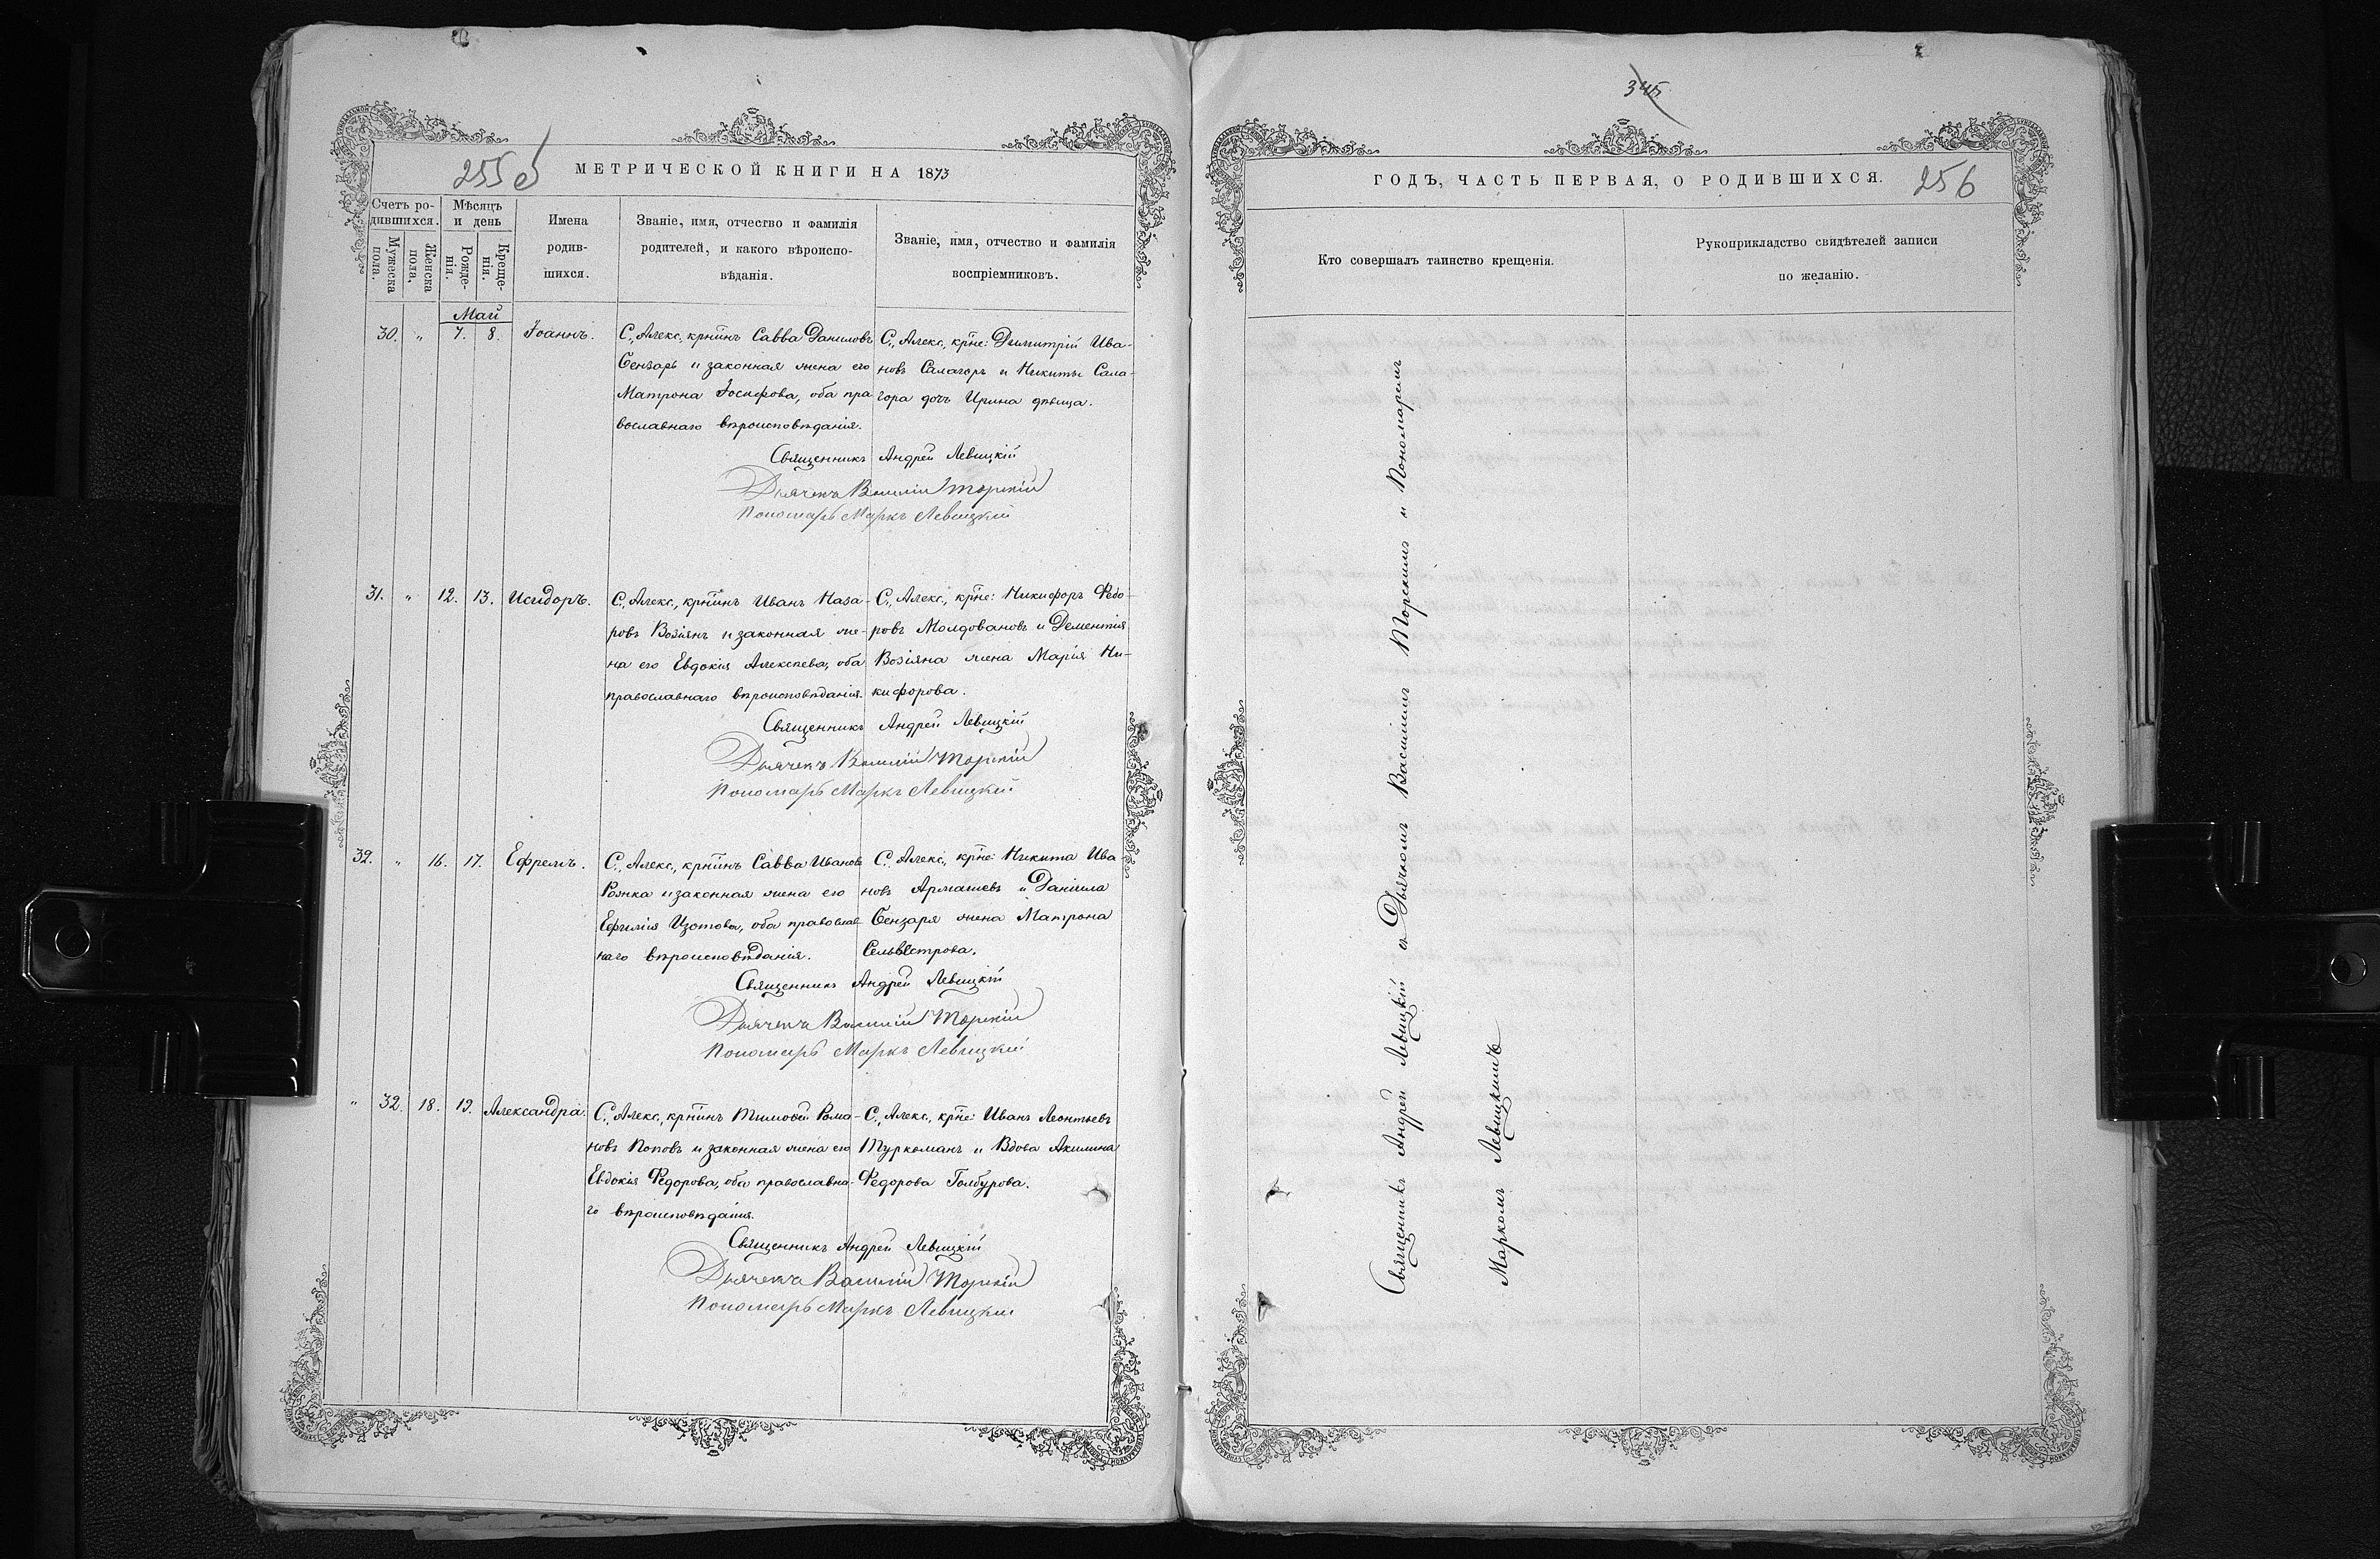 255 об
МЕТРИЧЕСКОЙ КНИГИ НА 1873
Счетъ родившихся.
Мужеска пола.
Женска пола.
Мѣсяцъ и день
Рожденія.
Крещенія.
Имена родившихся.
Званіе, имя, отчество и фамилія
родителей, и какого вѣроиспо-
вѣданія.
Званіе, имя, отчество и фамилія
воспріемниковъ.
Май
30. " 7. 8. Іоаннъ.
С., Алекс., крнинъ Савва Даниловъ
Бензарь и законная жена его
Матрона Іосифова, оба пра
вославнаго вѣроисповѣданія.
С., Алекс., крне: Димитрій Ива-
новъ Салагоръ и Никиты Сала-
гора дочь Ирина дѣвица.
Священникъ Андрей Левицкій
Дьячекъ Василій Торскій
Пономарь Маркъ Левицкій
31. " 12. 13. Исидоръ.
С., Алекс., крнинъ Иванъ Наза-
ровъ Возіянъ и законная же-
на его Евдокія Алексѣева, оба
православнаго вѣроисповѣданія.
С., Алекс., крне: Никифоръ Ѳедо-
ровъ Молдовановъ и Дементія
Возіяна жена Марія Ни-
кифорова.
Священникъ Андрей Левицкій
Дьячекъ Василій Торскій
Пономарь Маркъ Левицкій
32. " 16. 17. Ефремъ.
С., Алекс., крнинъ Савва Ивановъ
Рошка и законная жена его
Ефимія Изотова, оба православ-
наго вѣроисповѣданія.
С., Алекс., крне: Никита Ива
новъ Армашевъ и Даніила
Бензаря жена Матрона
Сельвестрова.
Священникъ Андрей Левицкій
Дьячекъ Василій Торскій
Пономарь Маркъ Левицкій
" 32. 18. 19. Александра.
С., Алекс., крнинъ Тимоѳей Рома-
новъ Поповъ и законная жена его
Евдокія Ѳедорова, оба православна-
го вѣроисповѣданія.
С., Алекс., крне: Иванъ Леонтьевъ
Туркоманъ и Вдова Акилина
Ѳедорова Голбурова.
Священникъ Андрей Левицкій
Дьячекъ Василій Торскій
Пономарь Маркъ Левицкій
345
ГОДЪ, ЧАСТЬ ПЕРВАЯ, О РОДИВШИХСЯ.
256
Кто совершалъ таинство крещенія.
Рукоприкладство свидѣтелей записи
по желанію.
Священникъ Андрей Левицкій съ Дьячкомъ Василіемъ Торскимъ и Пономаремъ
Маркомъ Левицкимъ